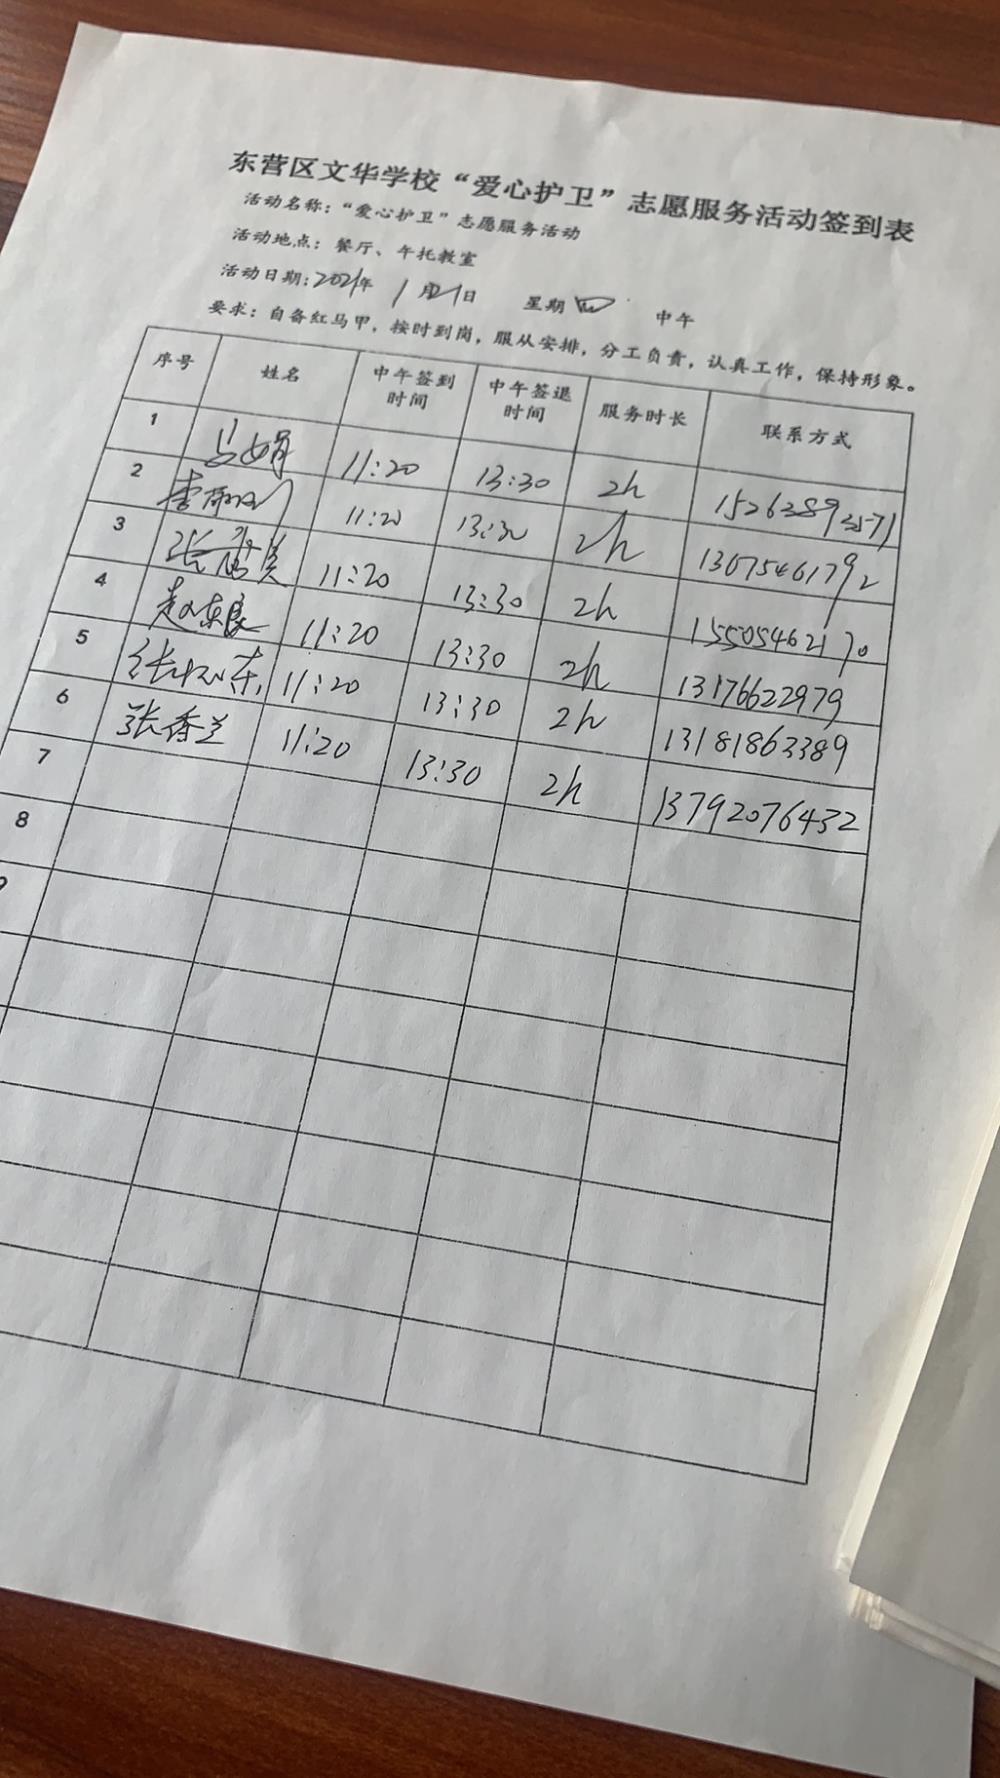 东营区文华学校“爱心护卫”志愿服务活动签到表
活动名称：“爱心护卫”志愿服务活动
活动地点：餐厅、午托教室
活动日期：2021年 1月21日 星期四 中午
要求：自备红马甲，按时到岗，服从安排，分工负责，认真工作，保持形象。
序号 姓名 中午签到时间 中午签退时间 服务时长 联系方式
1 马娟 11:20 13:30 2h
2 11:20 13:30 2h 13675461792
3 11:20 13:30 2h 15505462170
4 赵东良 11:20 13:30 2h 13176622979
5 11:20 13:30 2h 13181863389
6 张香兰 11:20 13:30 2h 13792076432
7
8